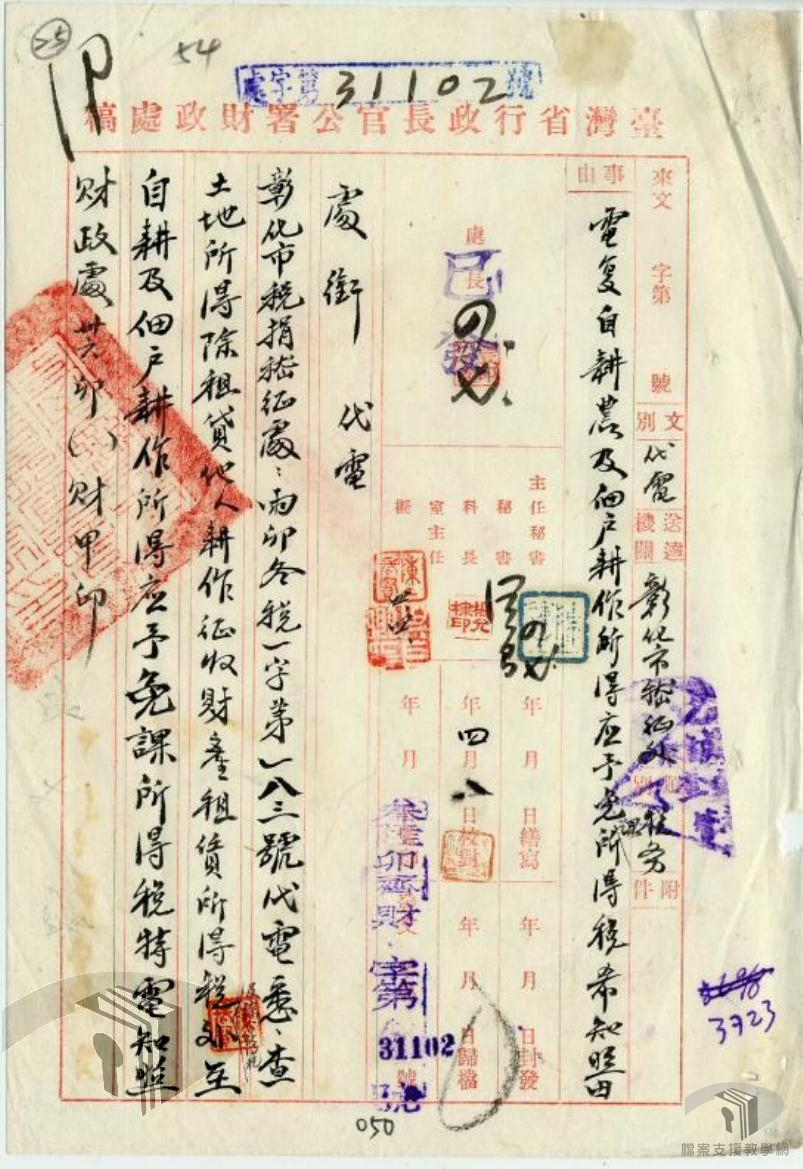 25
54
處字第31102號
臺灣省行政長官公署財政處稿
來文 字第 號
文別 代電
送達機關 彰化市稽征處
別 稅務
附件
事由
電复自耕農及佃戶耕作所得应予免課所得稅希知照由
處長
已發
主任秘書
秘書
科長
室主任
擬
年 月 日繕寫
年四月八日校對
年 月
年 月 日封發
年 月 日歸檔
卯 財 字第 31102 號
處銜 代電
彰化市稅捐稽征處:雨卯冬稅一字第一八三號代電悉查
土地所得除租貸他人耕作征收財產租賃所得稅外至
自耕及佃戶耕作所得应予免課所得稅特電知照
財政處 卅六卯(八)財甲印
3723
050
檔案支援教學網